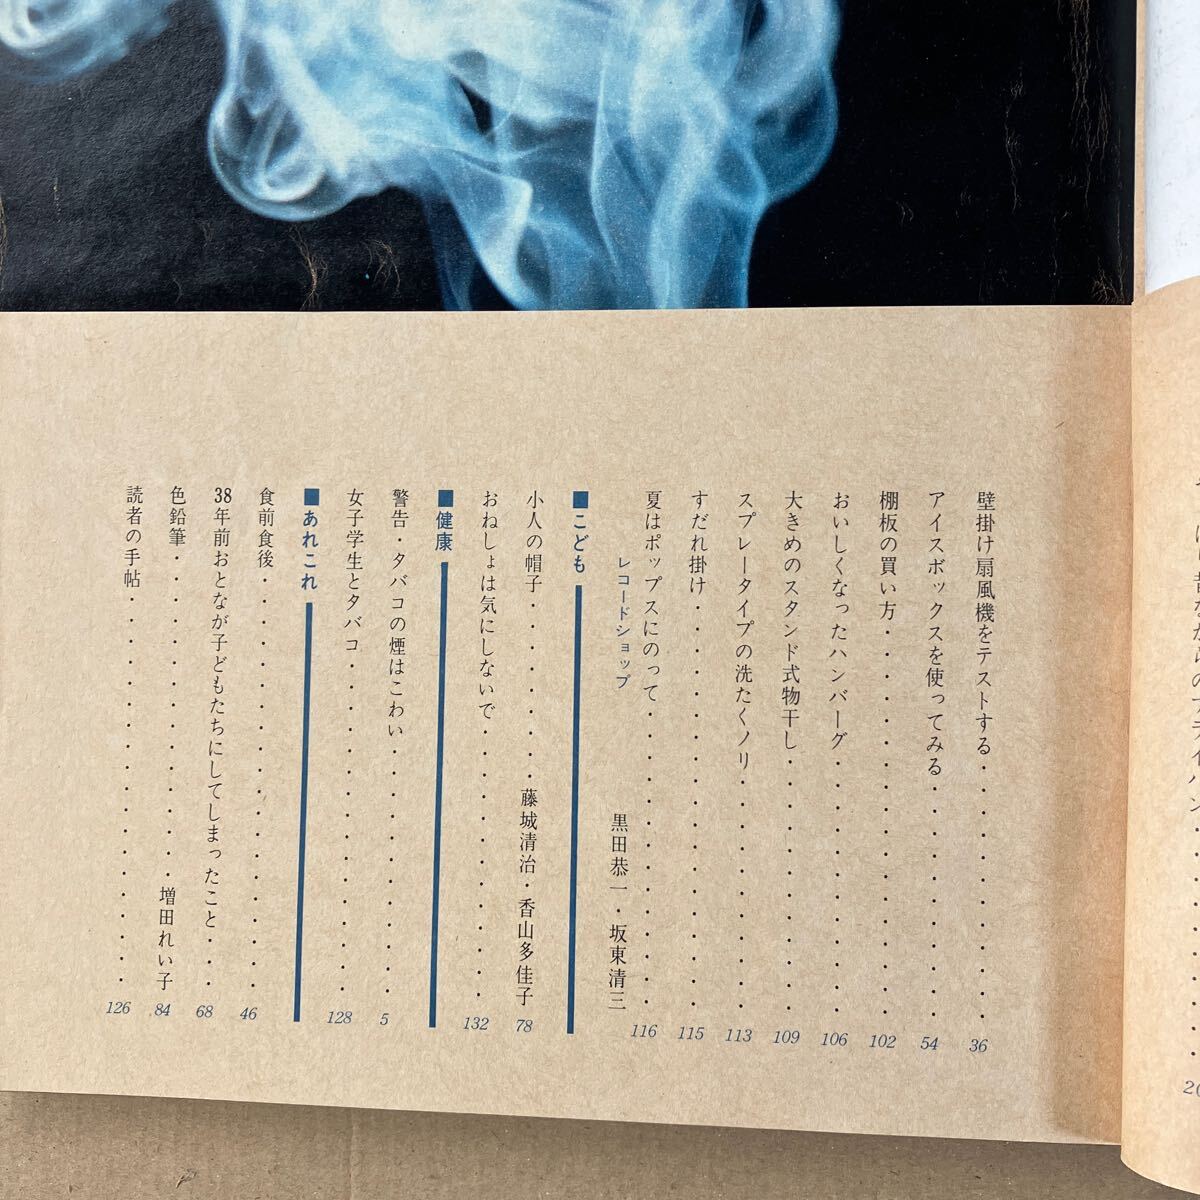 壁掛け扇風機をテストする・・・・・・・・・・・ 36
アイスボックスを使ってみる・・・・・・・・・・ 54
棚板の買い方・・・・・・・・・・・・・・・・・ 102
おいしくなったハンバーグ・・・・・・・・・・・ 106
大きめのスタンド式物干し・・・・・・・・・・・ 109
スプレータイプの洗たくノリ・・・・・・・・・・ 113
すだれ掛け・・・・・・・・・・・・・・・・・・ 115
夏はポップスにのって・・・・・・・・・・・・・ 116
レコードショップ 黒田恭一・坂東清三
■こども
小人の帽子・・・・・・・・藤城清治・香山多佳子 78
おねしょは気にしないで・・・・・・・・・・・・ 132
■健康
警告・タバコの煙はこわい・・・・・・・・・・・ 5
女子学生とタバコ・・・・・・・・・・・・・・・ 128
■あれこれ
食前食後・・・・・・・・・・・・・・・・・・・ 46
38年前おとなが子どもたちにしてしまったこと・・・ 68
色鉛筆・・・・・・・・・・・・・・・増田れい子 84
読者の手帖・・・・・・・・・・・・・・・・・・ 126